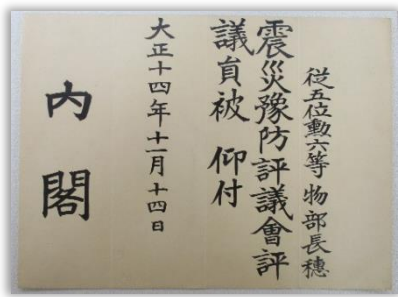 従五位勳六等 物部長穗
震災豫防評議會評
議員被 仰付
大正十四年十一月十四日
内閣